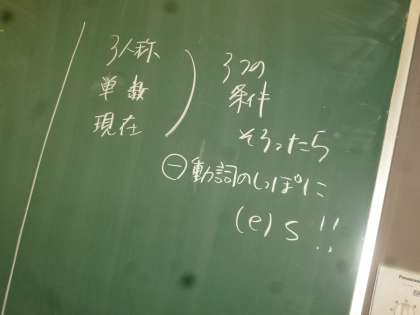 3人称
単数
現在
3つの
条件
そろったら
㊀動詞のしっぽに
(e)s!!
Panasonic